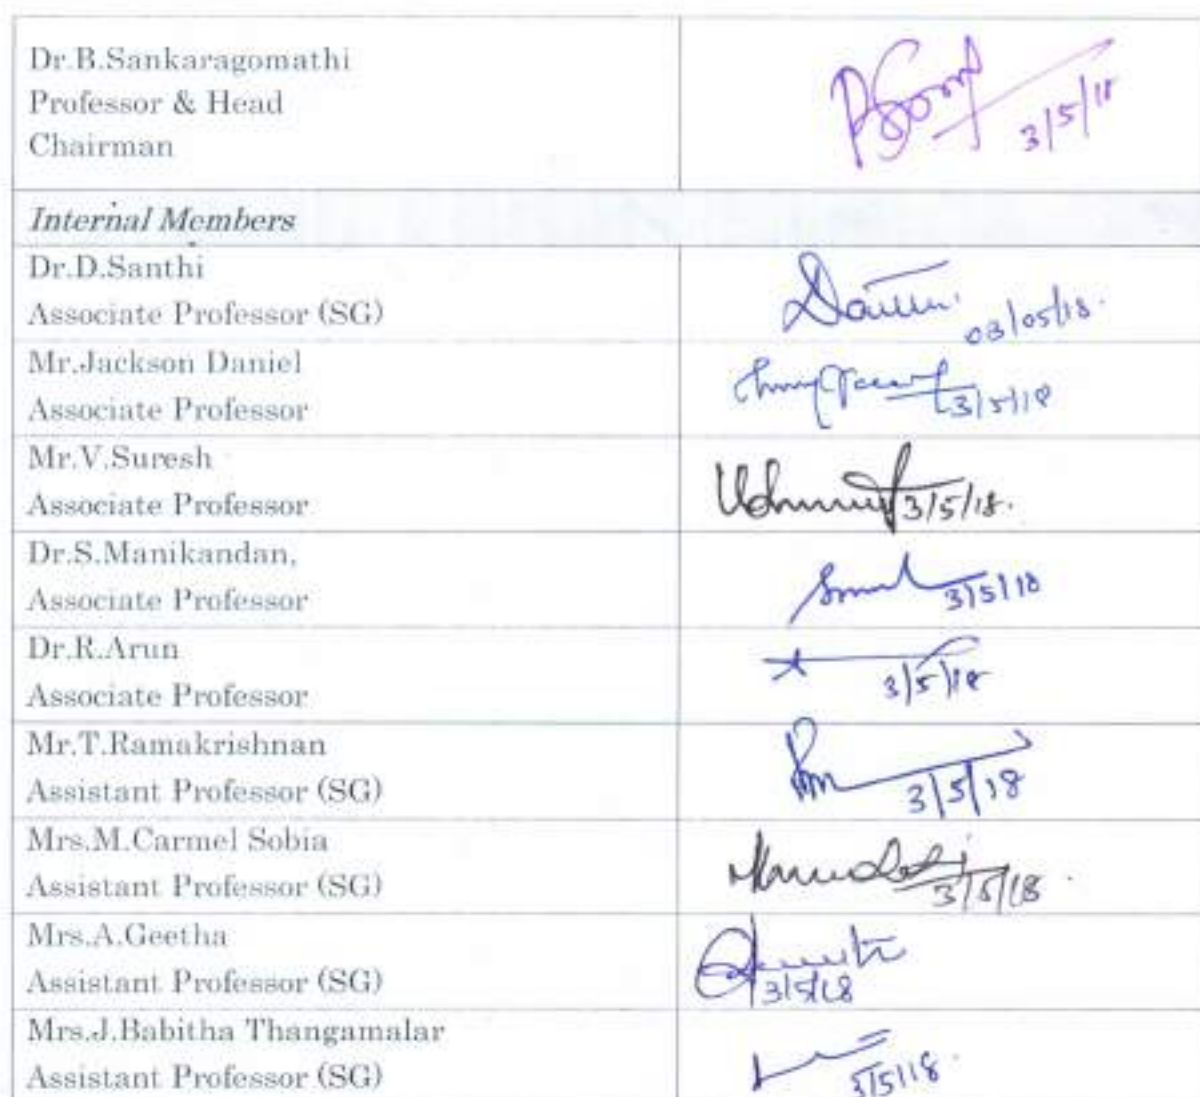 Dr.B.Sankaragomathi
Professor & Head
Chairman
3/5/18
Internal Members
Dr.D.Santhi
Associate Professor (SG)
03/05/18.
Mr.Jackson Daniel
Associate Professor
3/5/18
Mr.V.Suresh
Associate Professor
3/5/18.
Dr.S.Manikandan,
Associate Professor
3/5/18
Dr.R.Arun
Associate Professor
3/5/18
Mr.T.Ramakrishnan
Assistant Professor (SG)
3/5/18
Mrs.M.Carmel Sobia
Assistant Professor (SG)
3/5/18
Mrs.A.Geetha
Assistant Professor (SG)
3/5/18
Mrs.J.Babitha Thangamalar
Assistant Professor (SG)
3/5/18